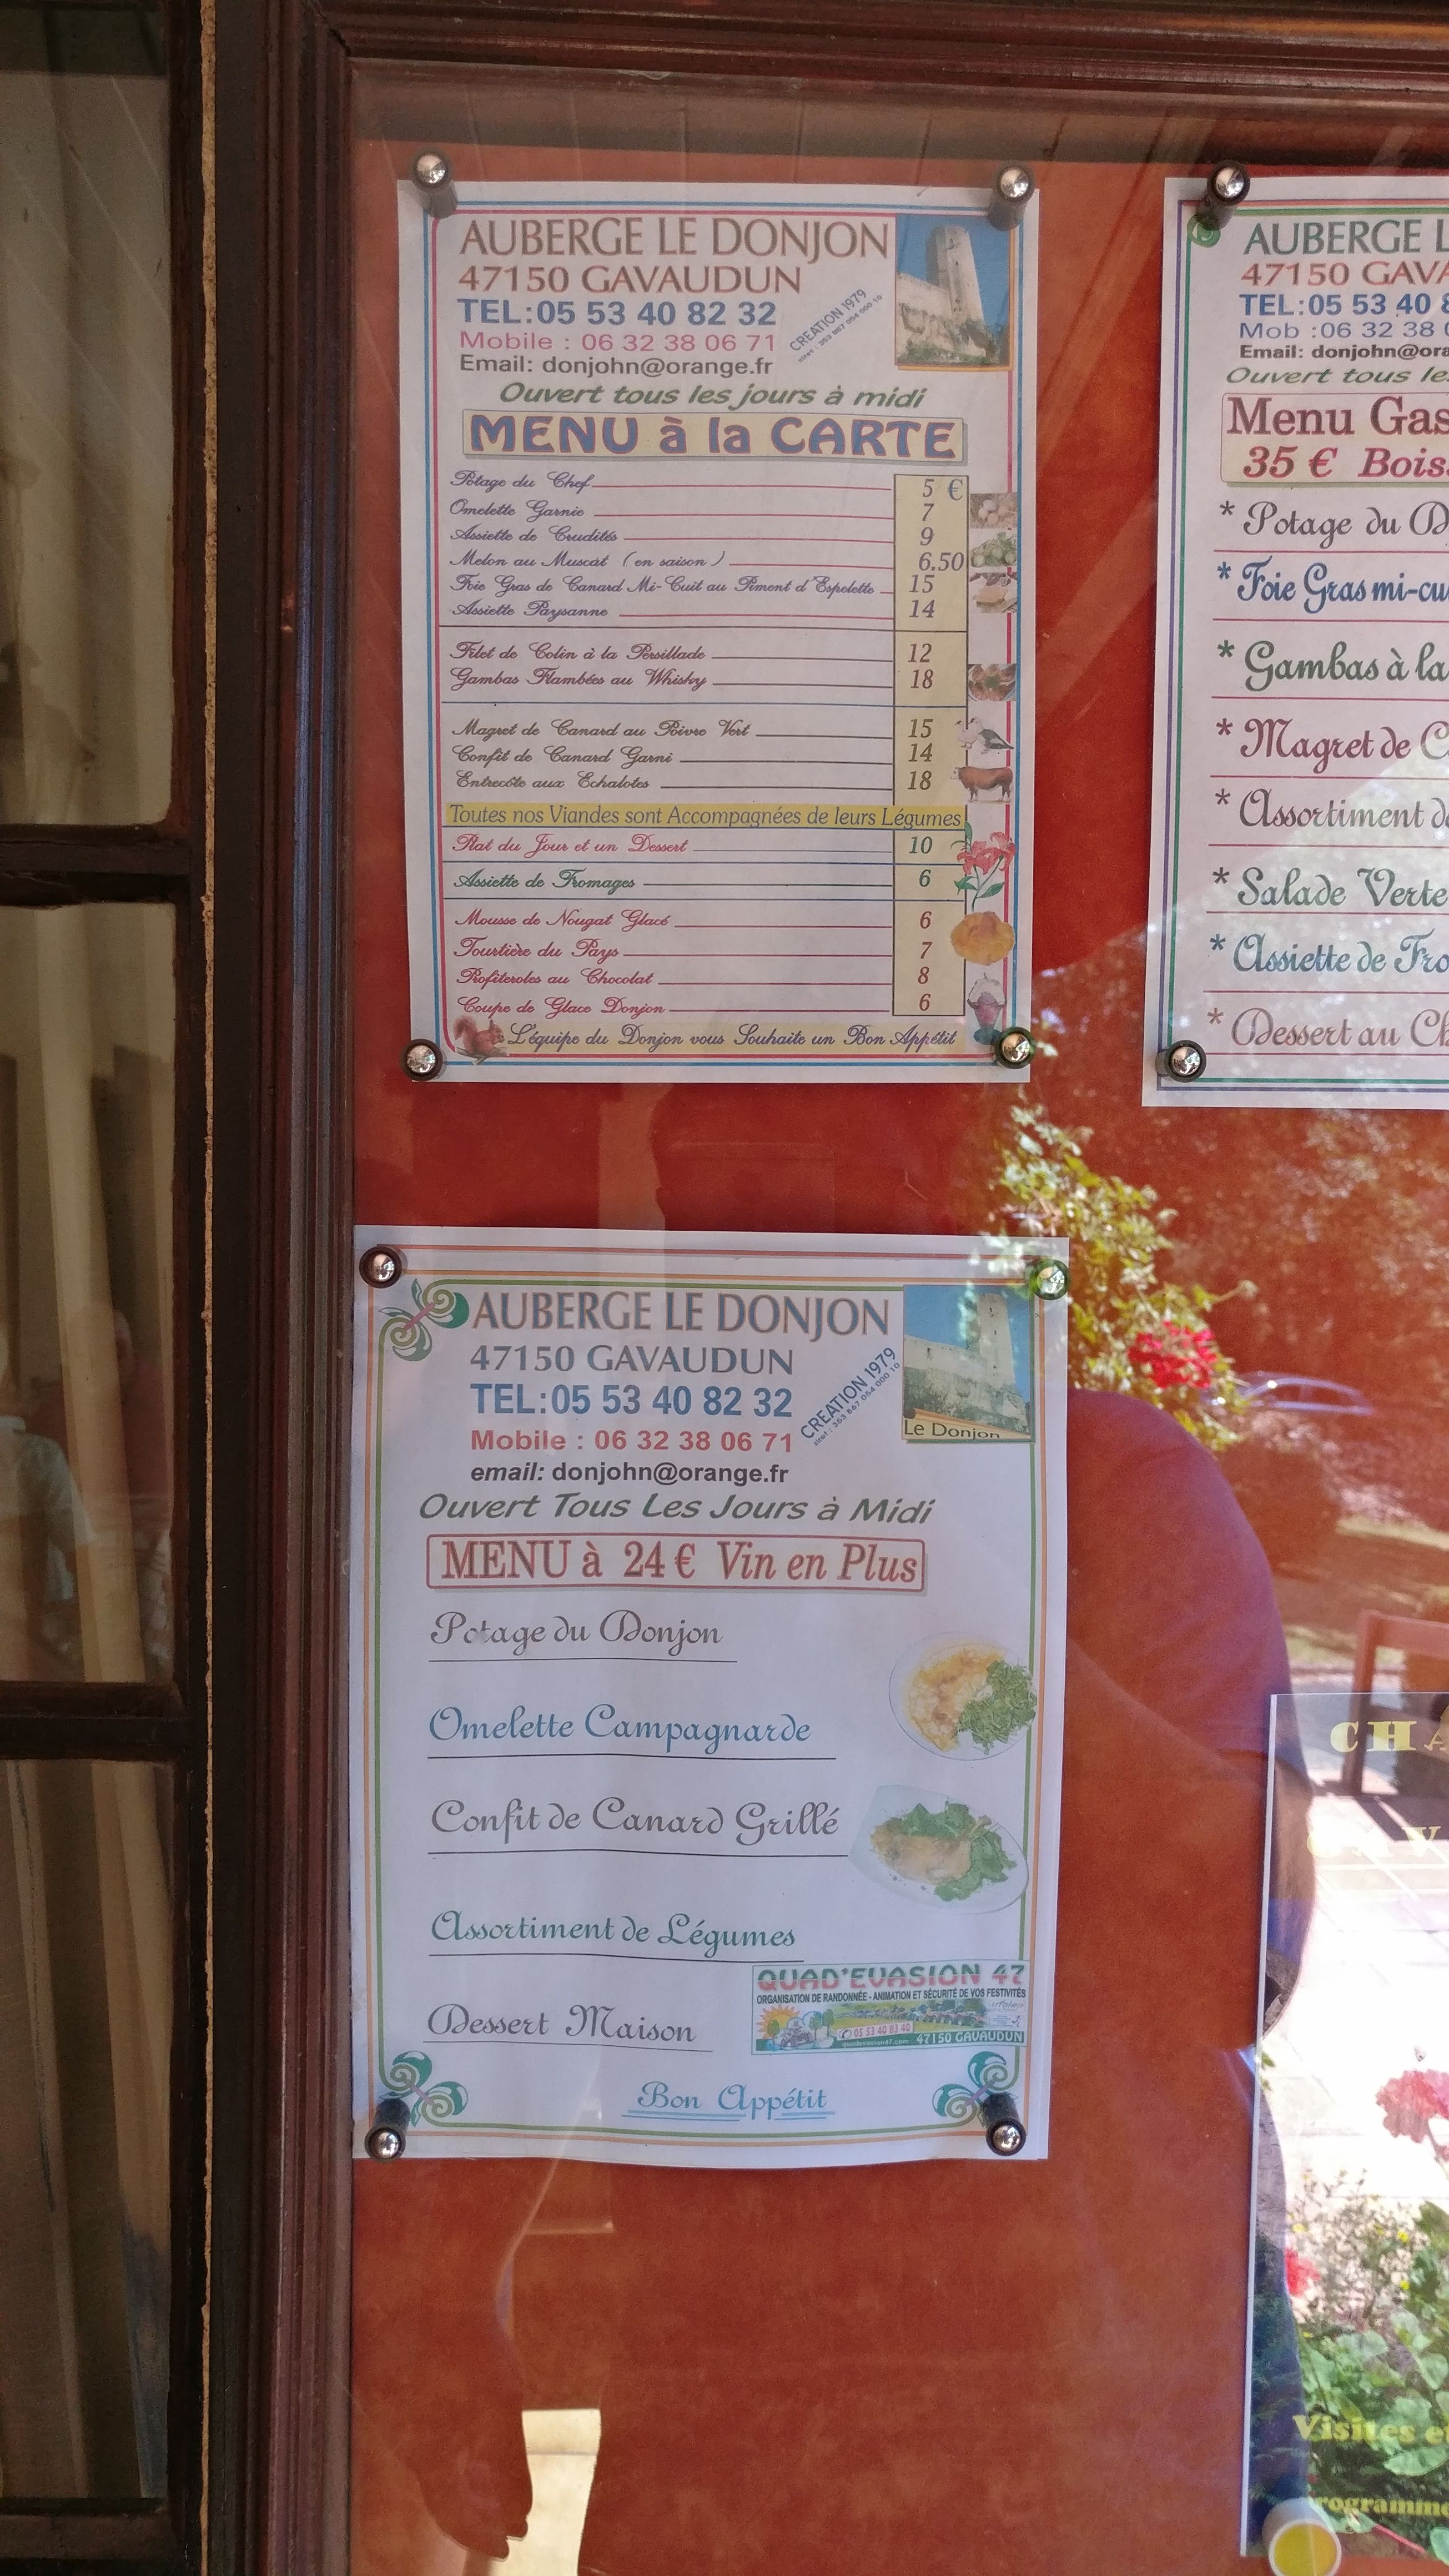 AUBERGE LE DONJON
47150 GAVAUDUN
TEL:05 53 40 82 32
Mobile : 06 32 38 06 71
Email: donjohn@orange.fr
CREATION 1979
Ouvert tous les jours à midi
MENU à la CARTE
Potage du Chef 5 €
Omelette Garnie 7
Assiette de Crudités 9
Melon au Muscat (en saison) 6.50
Foie Gras de Canard Mi-Cuit au Piment d'Espelette 15
Assiette Paysanne 14
Filet de Colin à la Persillade 12
Gambas Flambées au Whisky 18
Magret de Canard au Poivre Vert 15
Confit de Canard Garni 14
Entrecôte aux Echalotes 18
Toutes nos Viandes sont Accompagnées de leurs Légumes
Plat du Jour et un Dessert 10
Assiette de Fromages 6
Mousse de Nougat Glacé 6
Tourtière du Pays 7
Profiteroles au Chocolat 8
Coupe de Glace Donjon 6
L'équipe du Donjon vous Souhaite un Bon Appétit
AUBERGE L
47150 GAVA
TEL:05 53 40 8
Mob :06 32 38 0
Email: donjohn@ora
Ouvert tous le
Menu Gas
35 € Bois
* Potage du D
* Foie Gras mi-cu
* Gambas à la
* Magret de C
* Assortiment d
* Salade Verte
* Assiette de Fro
* Dessert au Ch
AUBERGE LE DONJON
47150 GAVAUDUN
TEL:05 53 40 82 32
Mobile : 06 32 38 06 71
email: donjohn@orange.fr
CREATION 1979
siret : 353 867 054 000 10
Le Donjon
Ouvert Tous Les Jours à Midi
MENU à 24 € Vin en Plus
Potage du Donjon
Omelette Campagnarde
Confit de Canard Grillé
Assortiment de Légumes
Dessert Maison
QUAD'EVASION 47
ORGANISATION DE RANDONNÉE - ANIMATION ET SÉCURITÉ DE VOS FESTIVITÉS
05 53 40 83 40
quadevasion47.com 47150 GAVAUDUN
Bon Appétit
CHA
AV
Visites e
rogramme